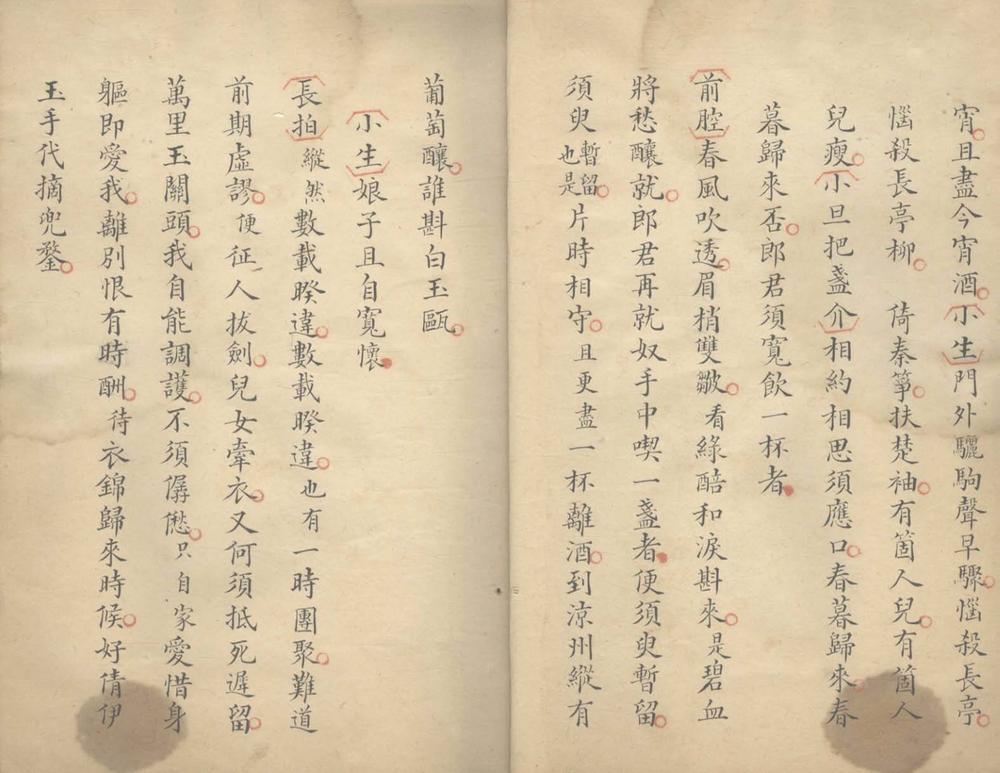 宵且盡今宵酒小生門外驪駒聲早驟惱殺長亭
惱殺長亭柳　倚秦箏扶楚袖有箇人兒有箇人
兒瘦小旦把盞介相約相思須應口春暮歸來春
暮歸來否郎君須寬飲一杯者
前腔春風吹透眉梢雙皺看綠醅和淚斟來是碧血
將愁釀就郎君再就奴手中喫一盞者便須臾暫留
須臾暫留也是片時相守且更盡一杯離酒到涼州縱有
葡萄釀誰斟白玉甌
小生娘子且自寬懷
長拍縱然數載暌違數載暌違也有一時團聚難道
前期虛謬便征人拔劍兒女牽衣又何須抵死遲留
萬里玉關頭我自能調護不須僝僽只自家愛惜身
軀即愛我離別恨有時酬待衣錦歸來時候好倩伊
玉手代摘兜鍪